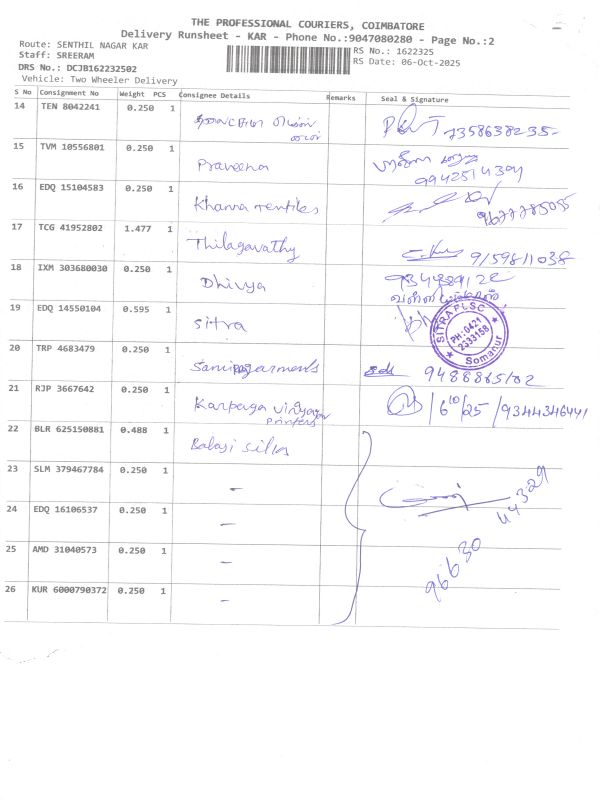 THE PROFESSIONAL COURIERS, COIMBATORE
Delivery Runsheet - KAR - Phone No.:9047080280 - Page No.:2
Route: SENTHIL NAGAR KAR
Staff: SREERAM
DRS No.: DCJB162232502
Vehicle: Two Wheeler Delivery
RS No.: 1622325
RS Date: 06-Oct-2025
S No Consignment No Weight PCS Consignee Details Remarks Seal & Signature
14 TEN 8042241 0.250 1 7358638235
15 TVM 10556801 0.250 1 Praveena 9942514394
16 EDQ 15104583 0.250 1 Khanna 9677785055
17 TCG 41952802 1.477 1 Thilagavathy 9159811038
18 IXM 303680030 0.250 1 Dhivya
19 EDQ 14550104 0.595 1 Sitra
SITRA PLSC
PH:0421
2333158
Somanur
20 TRP 4683479 0.250 1 9486865102
21 RJP 3667642 0.250 1 Karpaga Vinayagar 6/10/25 / 9344346441
Printers
22 BLR 625150881 0.488 1 Balaji silks
23 SLM 379467784 0.250 1 -
24 EDQ 16106537 0.250 1 -
25 AMD 31040573 0.250 1 -
26 KUR 6000790372 0.250 1 -
96630 44329